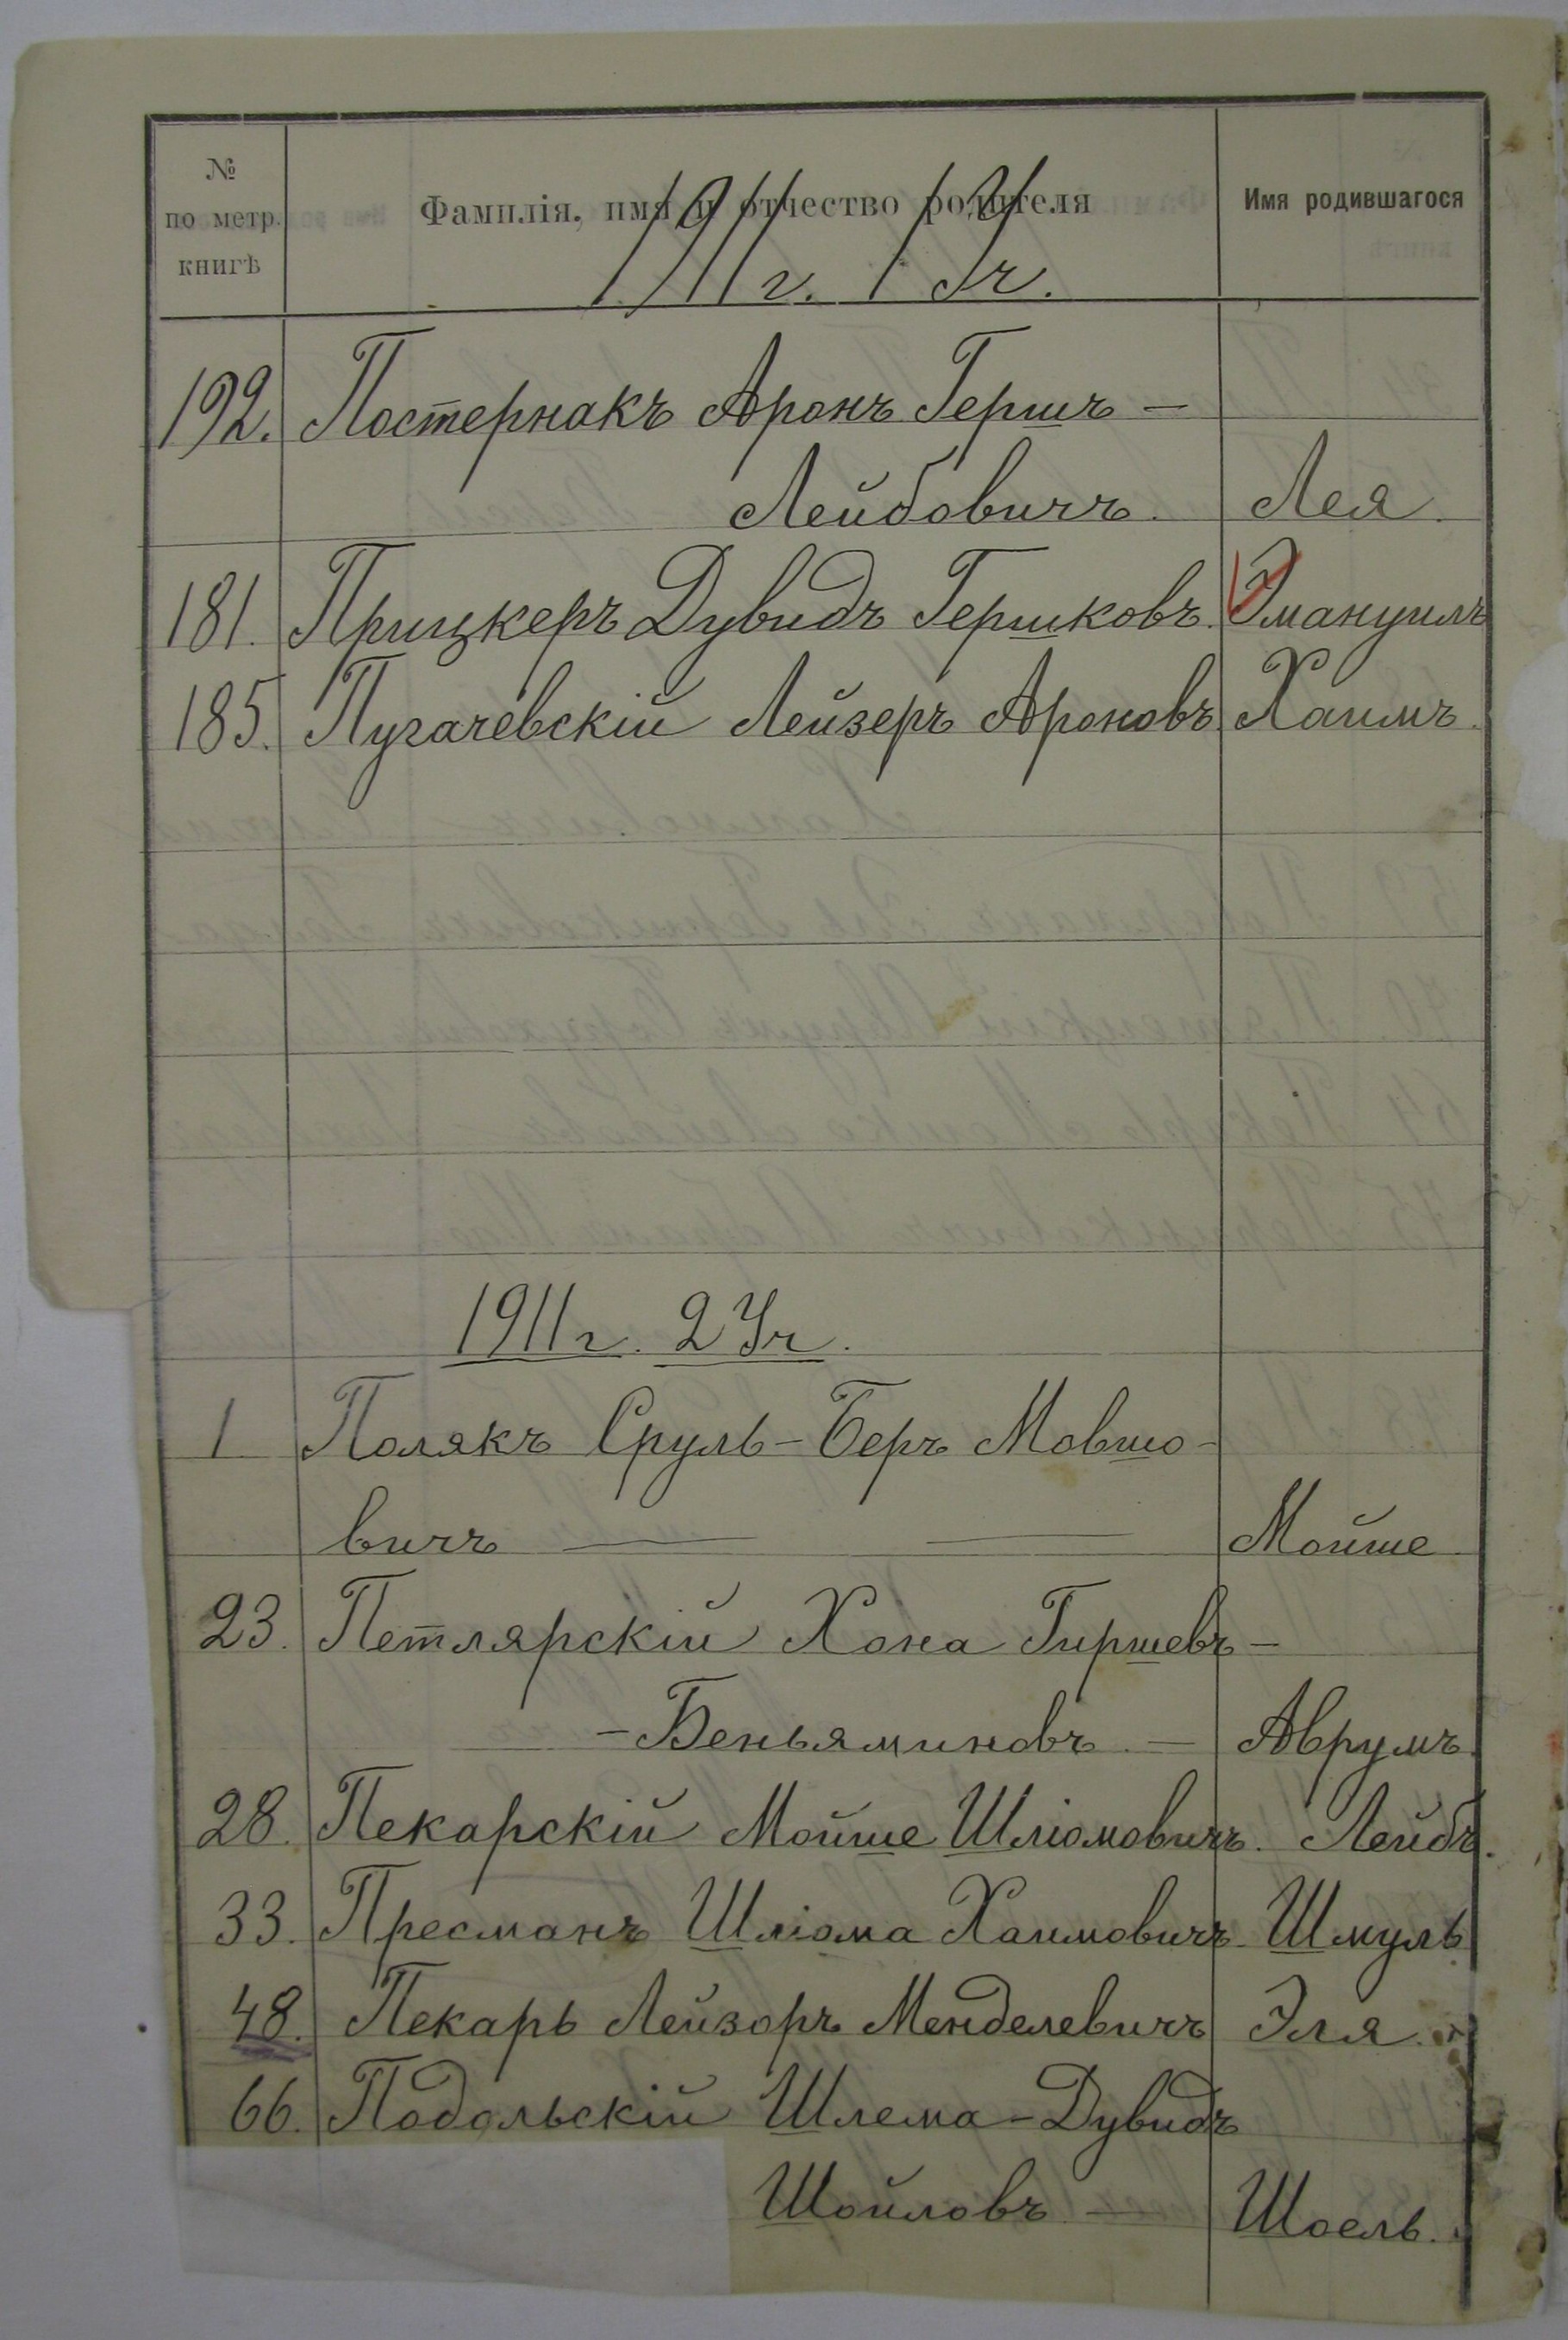 №
по метр.
книгѣ
Фамилія, имя и отчество родителя
Имя родившагося
1911 г. 1 Уч.
192. Постернакъ Аронъ Гершъ -
Лейбовичъ. Лея.
181. Прицкеръ Дувидъ Гершковъ. Эмануилъ
185. Пугачевскій Лейзеръ Ароновъ. Хаимъ.
1911 г. 2 Уч.
1 Полякъ Сруль-Беръ Мовшо-
вичъ Мойше
23. Петлярскій Хона Гиршевъ -
- Беньяминовъ. - Аврумъ.
28. Пекарскій Мойше Шліомовичъ. Лейбъ.
33. Пресманъ Шліома Хаимовичъ. Шмуль.
48. Пекарь Лейзоръ Менделевичъ Эля.
66. Подольскій Шлема-Дувидъ
Шойловъ - Шоель.